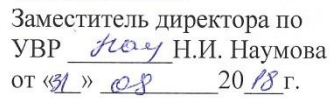 Заместитель директора по
УВР Нау Н.И. Наумова
от «31» 08 2018 г.